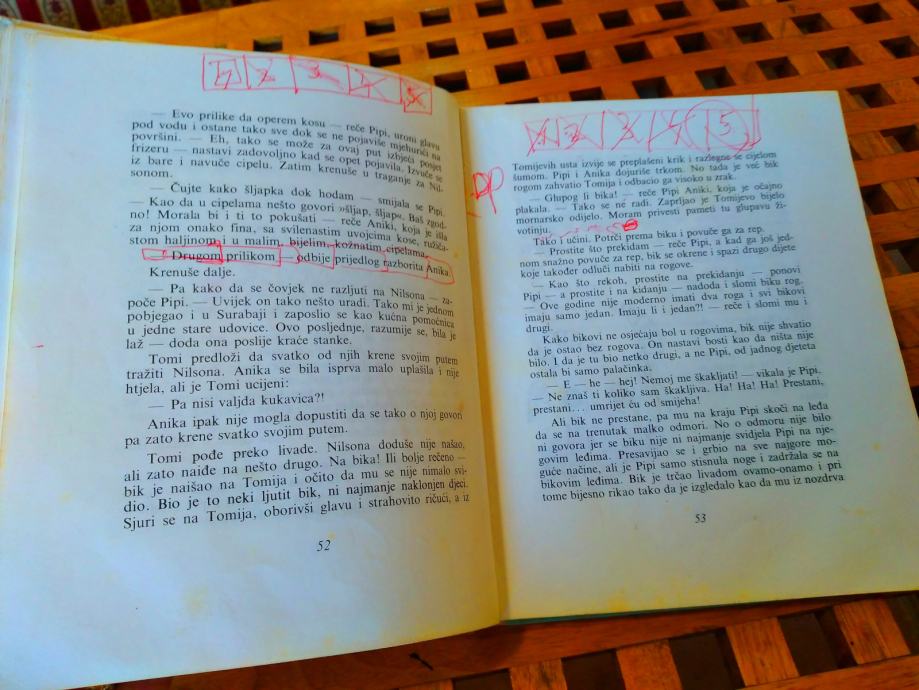 1 2 3 4 5
— Evo prilike da operem kosu — reče Pipi, uroni glavu
pod vodu i ostane tako sve dok se ne pojaviše mjehurići na
površini. — Eh, tako se može za ovaj put izbjeći posjet
frizeru — nastavi zadovoljno kad se opet pojavila. Izvuče se
iz bare i navuče cipelu. Zatim krenuše u traganje za Nil-
sonom.
— Čujte kako šljapka dok hodam — smijala se Pipi.
— Kao da u cipelama nešto govori »šljap, šljap«. Baš zgod-
no! Morala bi i ti to pokušati — reče Aniki, koja je išla
za njom onako fina, sa svilenastim uvojcima kose, ružiča-
stom haljinom i u malim, bijelim, kožnatim cipelama.
— Drugom prilikom — odbije prijedlog razborita Anika.
Krenuše dalje.
— Pa kako da se čovjek ne razljuti na Nilsona — za-
poče Pipi. — Uvijek on tako nešto uradi. Tako mi je jednom
pobjegao i u Surabaji i zaposlio se kao kućna pomoćnica
u jedne stare udovice. Ovo posljednje, razumije se, bila je
laž — doda ona poslije kraće stanke.
Tomi predloži da svatko od njih krene svojim putem
tražiti Nilsona. Anika se bila isprva malo uplašila i nije
htjela, ali je Tomi ucijeni:
— Pa nisi valjda kukavica?!
Anika ipak nije mogla dopustiti da se tako o njoj govori
pa zato krene svatko svojim putem.
Tomi pođe preko livade. Nilsona doduše nije našao,
ali zato naiđe na nešto drugo. Na bika! Ili bolje rečeno —
bik je naišao na Tomija i očito da mu se nije nimalo svi-
dio. Bio je to neki ljutit bik, ni najmanje naklonjen djeci.
Sjuri se na Tomija, oborivši glavu i strahovito ričući, a iz
52
2 3 4 5
Tomijevih usta izvije se preplašeni krik i razlegne se cijelom
šumom. Pipi i Anika dojuriše trkom. No tada je već bik
rogom zahvatio Tomija i odbacio ga visoko u zrak.
— Glupog li bika! — reče Pipi Aniki, koja je očajno
plakala. — Tako se ne radi. Zaprljao je Tomijevo bijelo
mornarsko odijelo. Moram privesti pameti tu glupavu ži-
votinju.
Tako i učini. Potrči prema biku i povuče ga za rep.
— Prostite što prekidam — reče Pipi, a kad ga još jed-
nom snažno povuče za rep, bik se okrene i spazi drugo dijete
koje također odluči nabiti na rogove.
— Kao što rekoh, prostite na prekidanju — ponovi
Pipi — a prostite i na kidanju — nadoda i slomi biku rog.
— Ove godine nije moderno imati dva roga i svi bikovi
imaju samo jedan. Imaju li i jedan?! — reče i slomi mu i
drugi.
Kako bikovi ne osjećaju bol u rogovima, bik nije shvatio
da je ostao bez rogova. On nastavi bosti kao da ništa nije
bilo. I da je tu bio netko drugi, a ne Pipi, od jadnog djeteta
ostala bi samo palačinka.
— E — he — hej! Nemoj me škakljati! — vikala je Pipi.
— Ne znaš ti koliko sam škakljiva. Ha! Ha! Ha! Prestani,
prestani... umrijet ću od smijeha!
Ali bik ne prestane, pa mu na kraju Pipi skoči na leđa
da se na trenutak malko odmori. No o odmoru nije bilo
ni govora jer se biku nije ni najmanje svidjela Pipi na nje-
govim leđima. Presavijao se i grbio na sve najgore mo-
guće načine, ali je Pipi samo stisnula noge i zadržala se na
bikovim leđima. Bik je trčao livadom ovamo-onamo i pri
tome bijesno rikao tako da je izgledalo kao da mu iz nozdrva
53